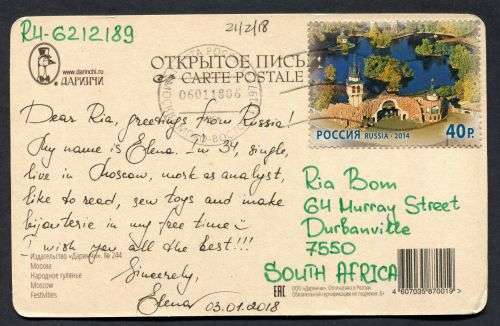 RU-6212189
21/2/18
www.darinchi.ru
ДАРИНЧИ
ОТКРЫТОЕ ПИСЬ
CARTE POSTALE
06011806
РОССИЯ RUSSIA · 2014 40 Р.
Dear Ria, greetings from Russia!
My name is Elena. I'm 34, single,
live in Moscow, work as analyst,
like to read, sew toys and make
bijouterie in my free time :)
I wish you all the best!!!
Sincerely,
Elena 03.01.2018
Ria Bom
64 Murray Street
Durbanville
7550
SOUTH AFRICA
Издательство «Даринчи». № 244
Москва
Народное гулянье
Moscow
Festivities
EAC
4 607035 870019